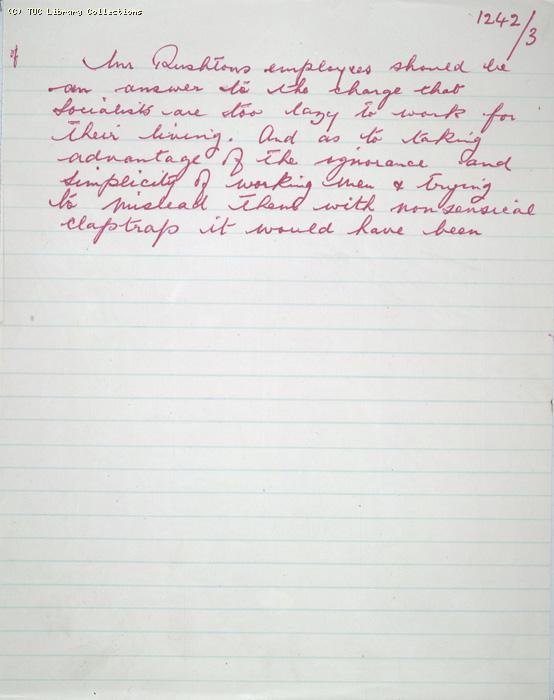 (C) TUC Library Collections
1242/3
of
Mr Rushtons employees should be
an answer to the charge that
Socialists are too lazy to work for
their living. And as to taking
advantage of the ignorance and
simplicity of working men & trying
to mislead them with nonsensical
claptrap it would have been